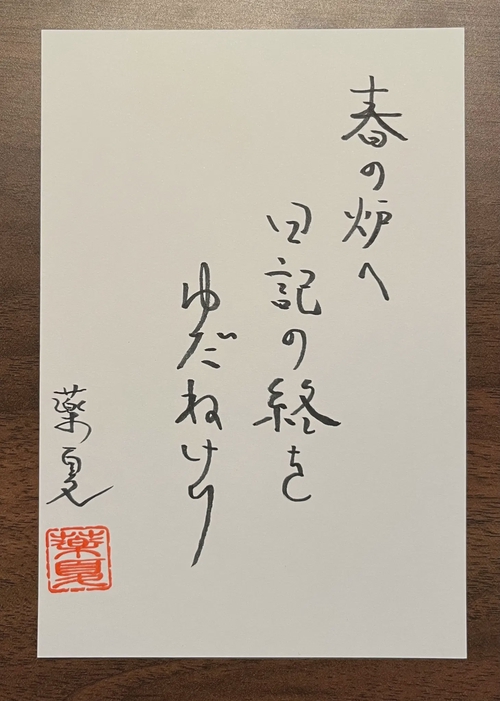 春の炉へ
日記の終を
ゆだねけり
薬夏
薬夏